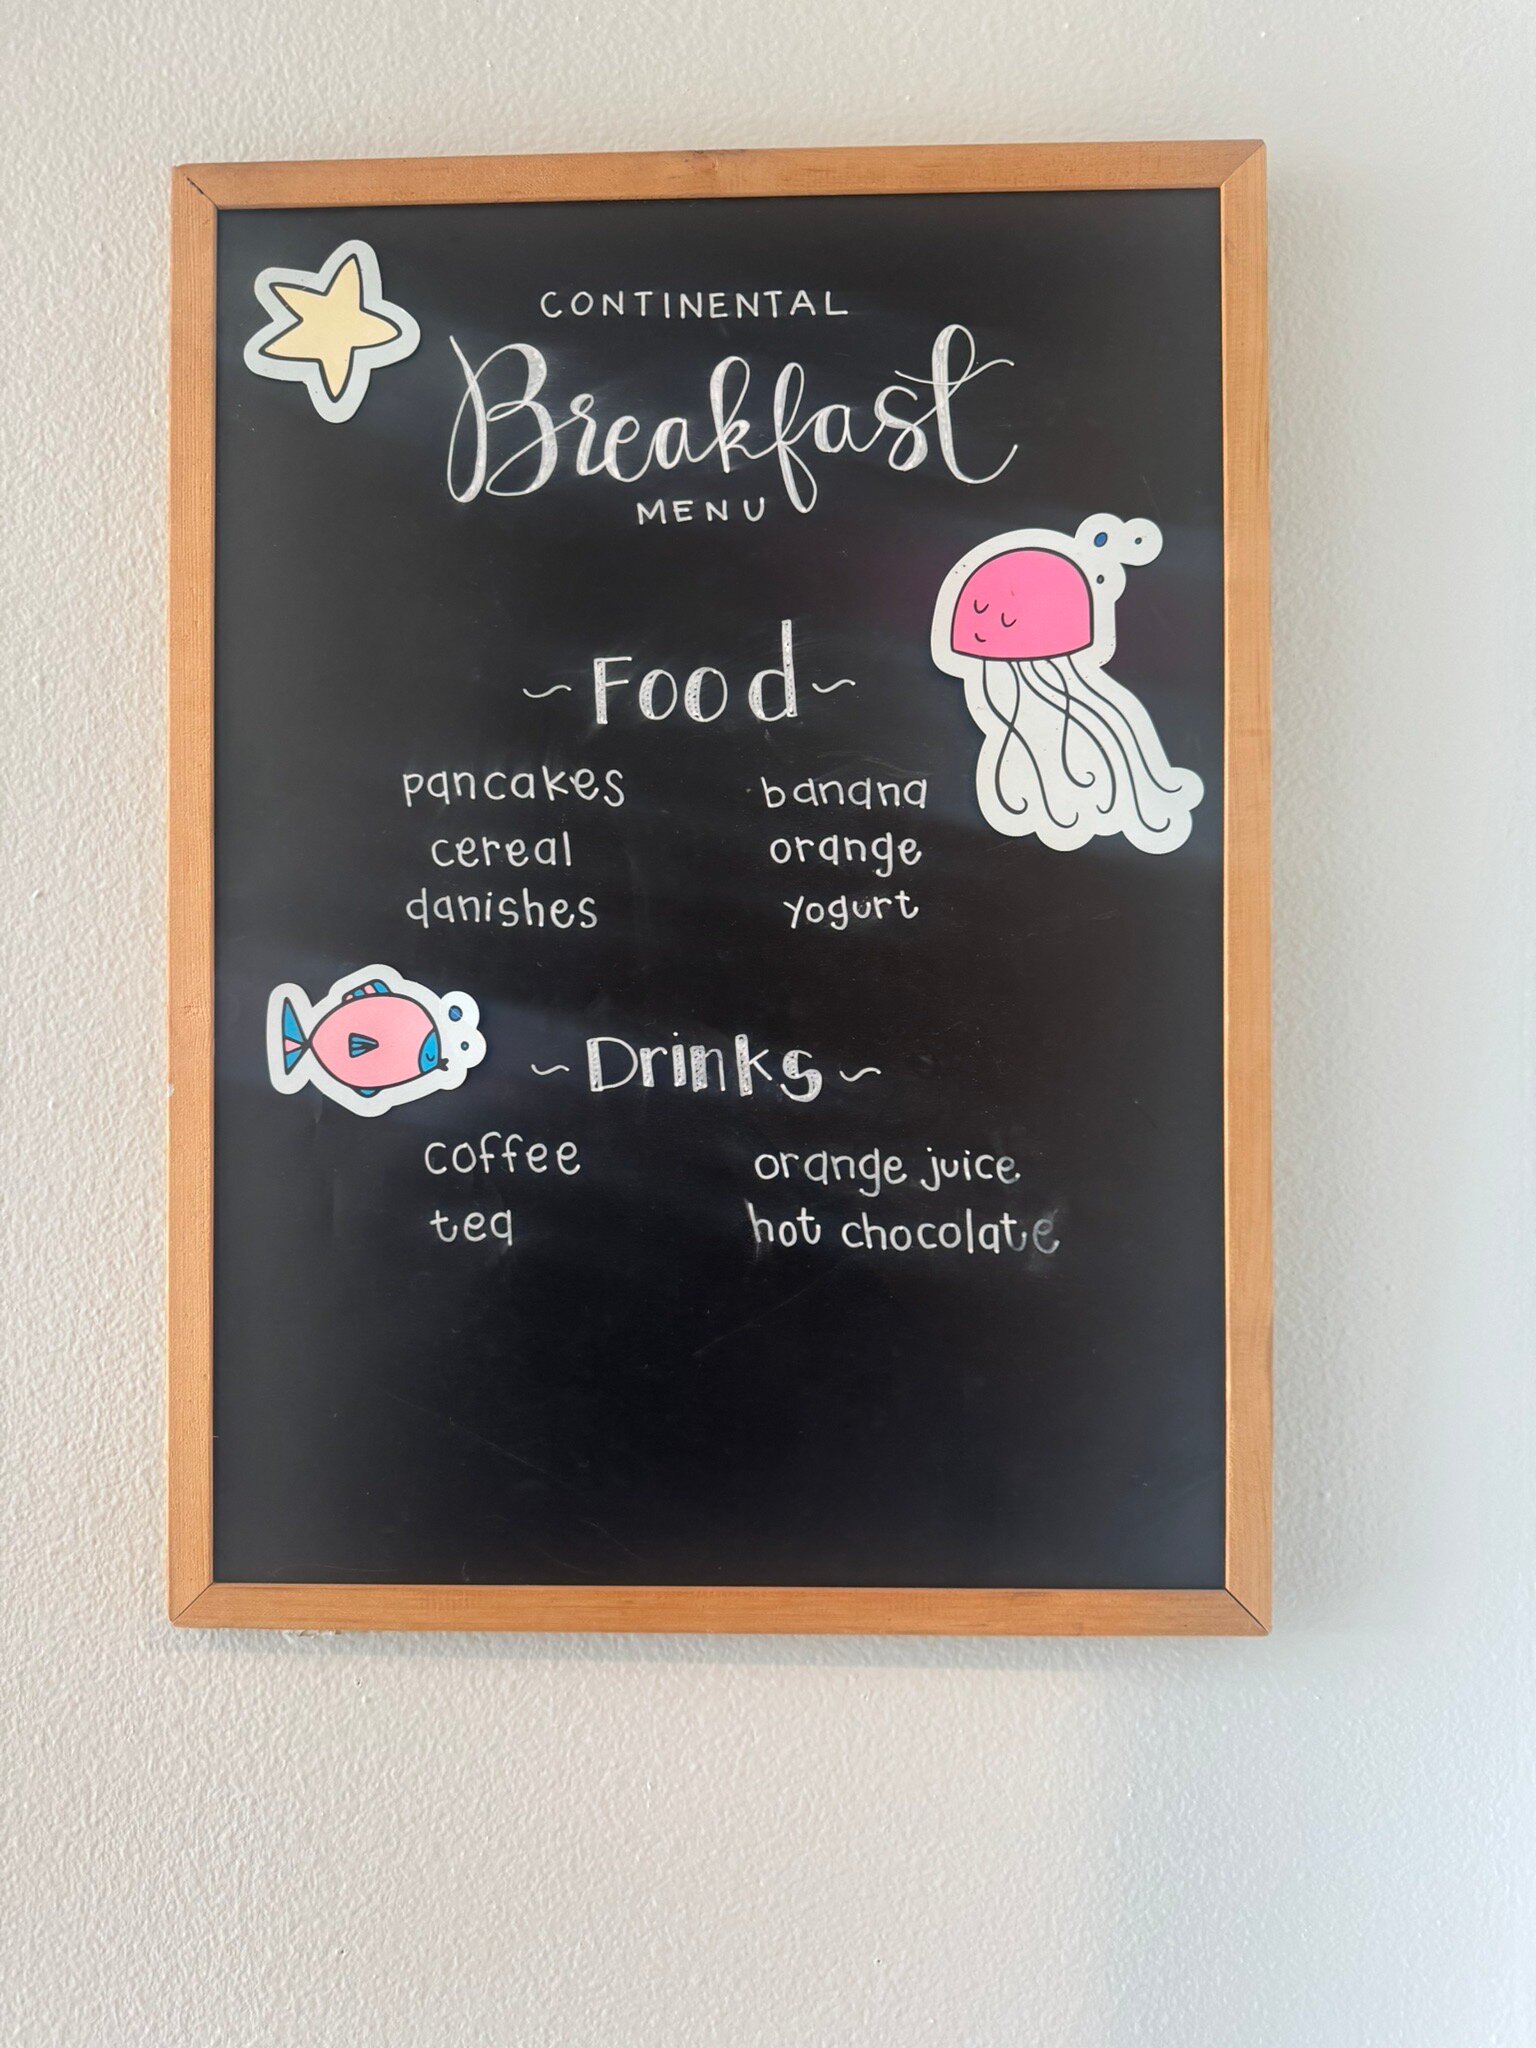 CONTINENTAL
Breakfast
MENU
~Food~
pancakes
cereal
danishes
banana
orange
yogurt
~Drinks~
coffee
tea
orange juice
hot chocolate